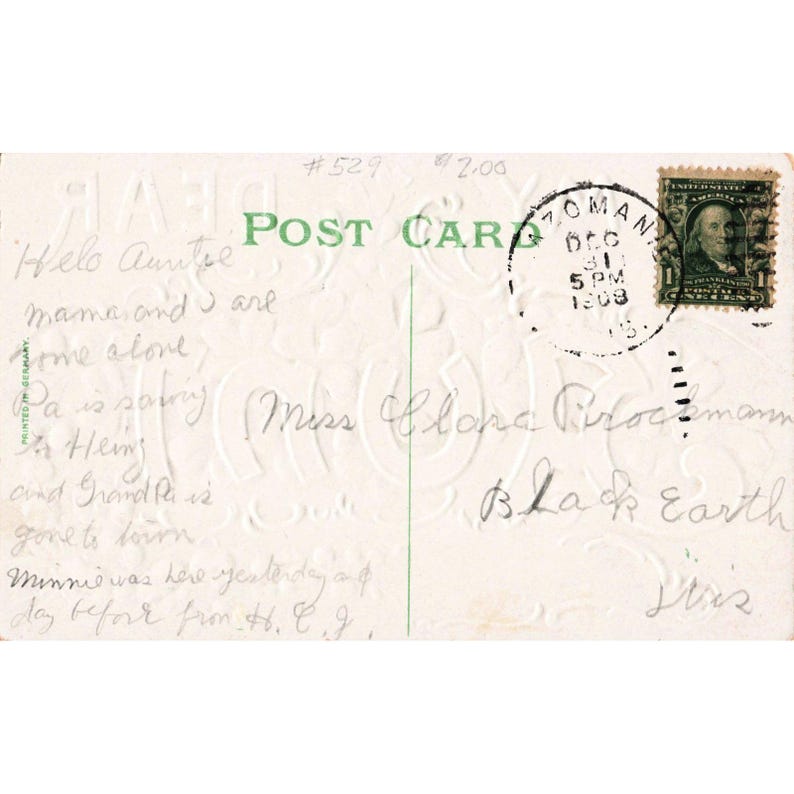 #529 $2.00
POST CARD
MAZOMANIE
DEC
31
5 PM
1908
WIS.
UNITED STATES
AMERICA
FRANKLIN
1 1
POSTAGE
ONE CENT
Helo Auntie
mama and I are
home alone,
Pa is sawing
Heinz
and Grand Pa is
gone to town
Minnie was here yesterday and
day before from H. C. J.
PRINTED IN GERMANY.
Miss Clara Brockmann
Black Earth
Wis
DEAR